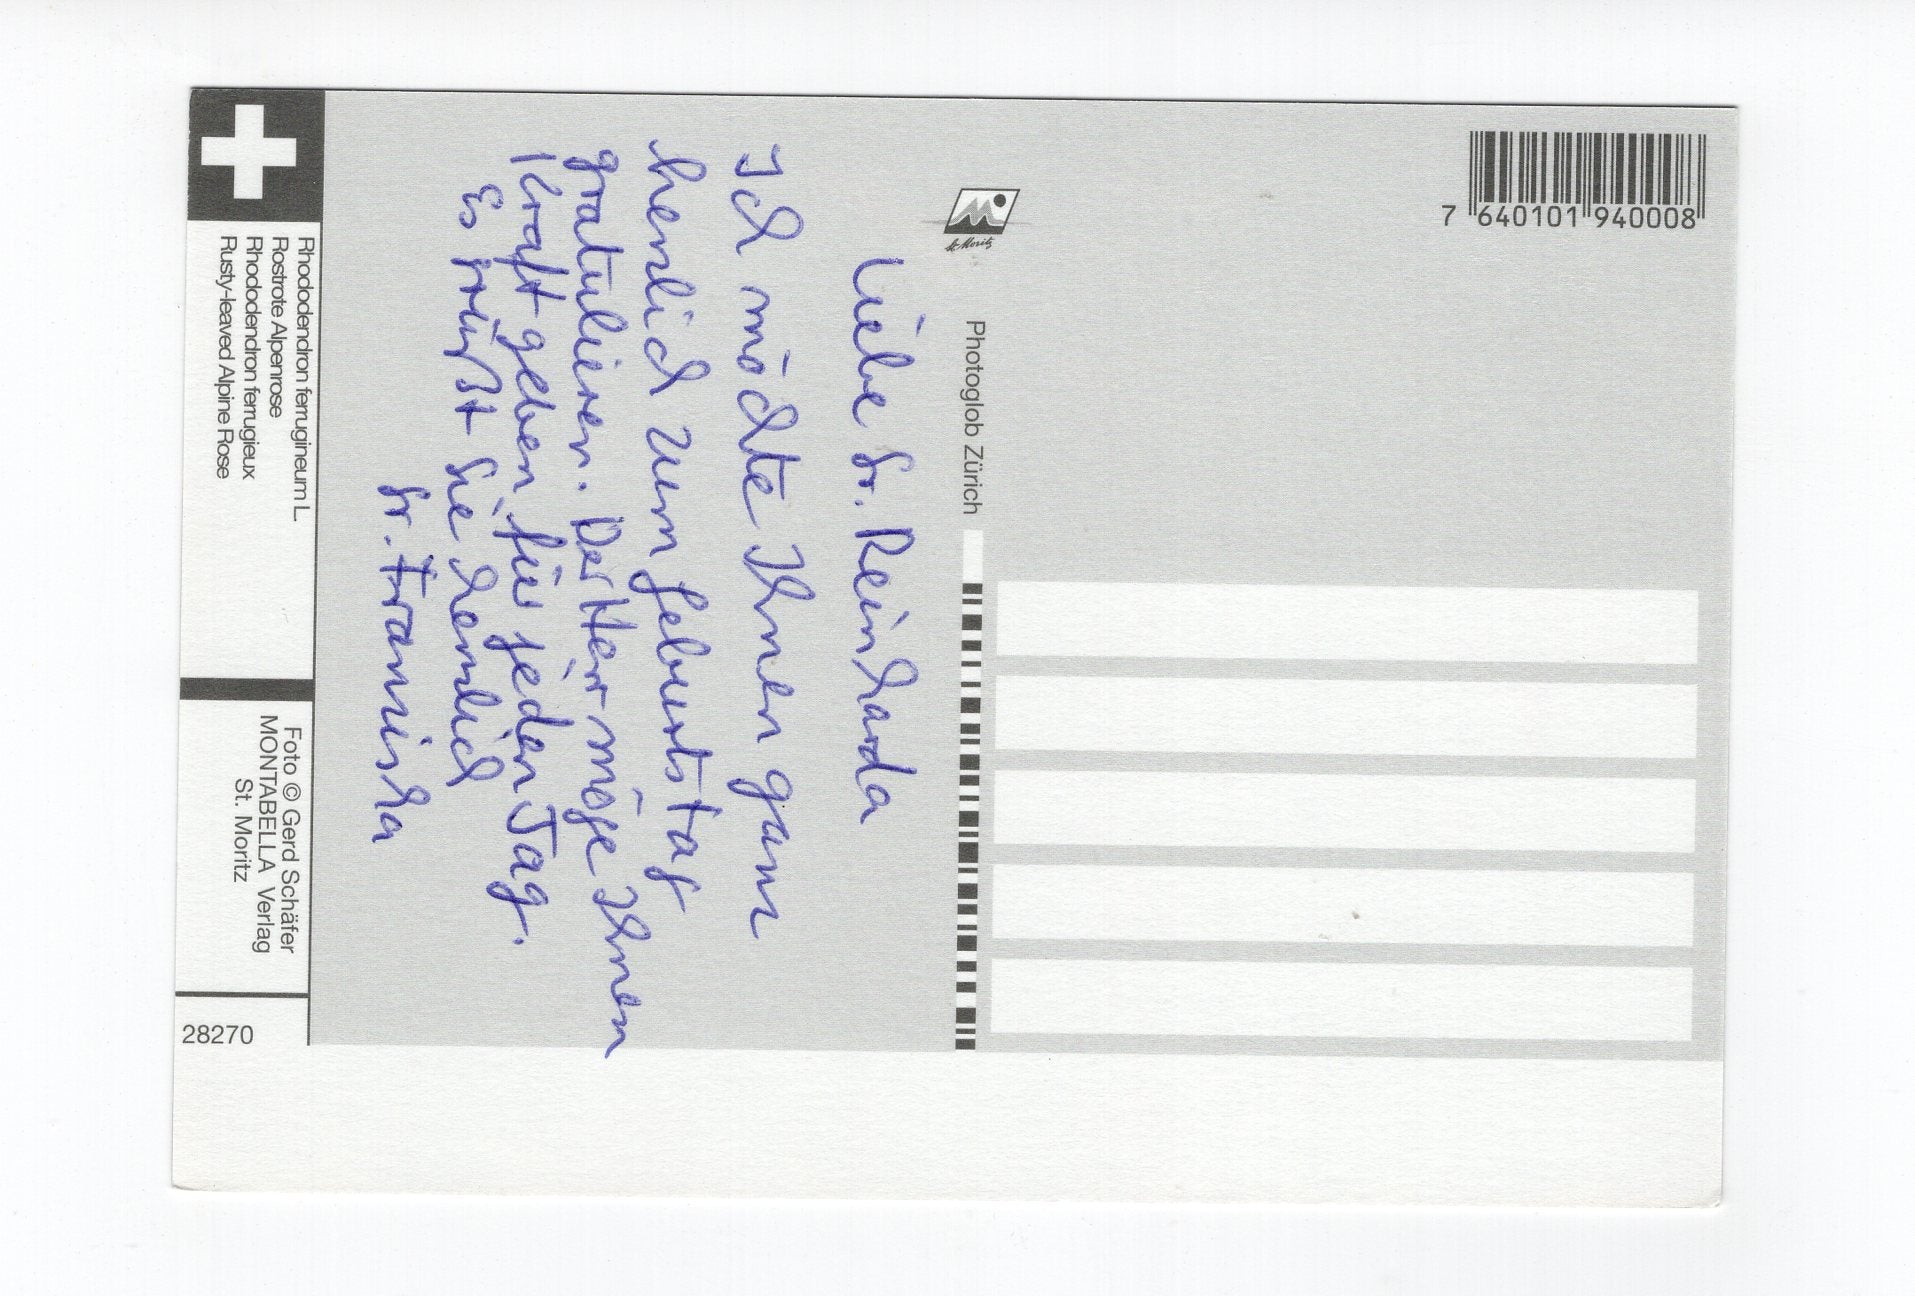 Liebe Sr. Reinharda
Ich möchte Ihnen ganz
herzlich zum Geburtstag
gratulieren. Der Herr möge Ihnen
Kraft geben für jeden Tag.
Es grüßt Sie herzlich
Sr. Franziska
Rhododendron ferrugineum L.
Rostrote Alpenrose
Rhododendron ferrugieux
Rusty-leaved Alpine Rose
Foto © Gerd Schäfer
MONTABELLA Verlag
St. Moritz
28270
St. Moritz
Photoglob Zürich
7 640101 940008